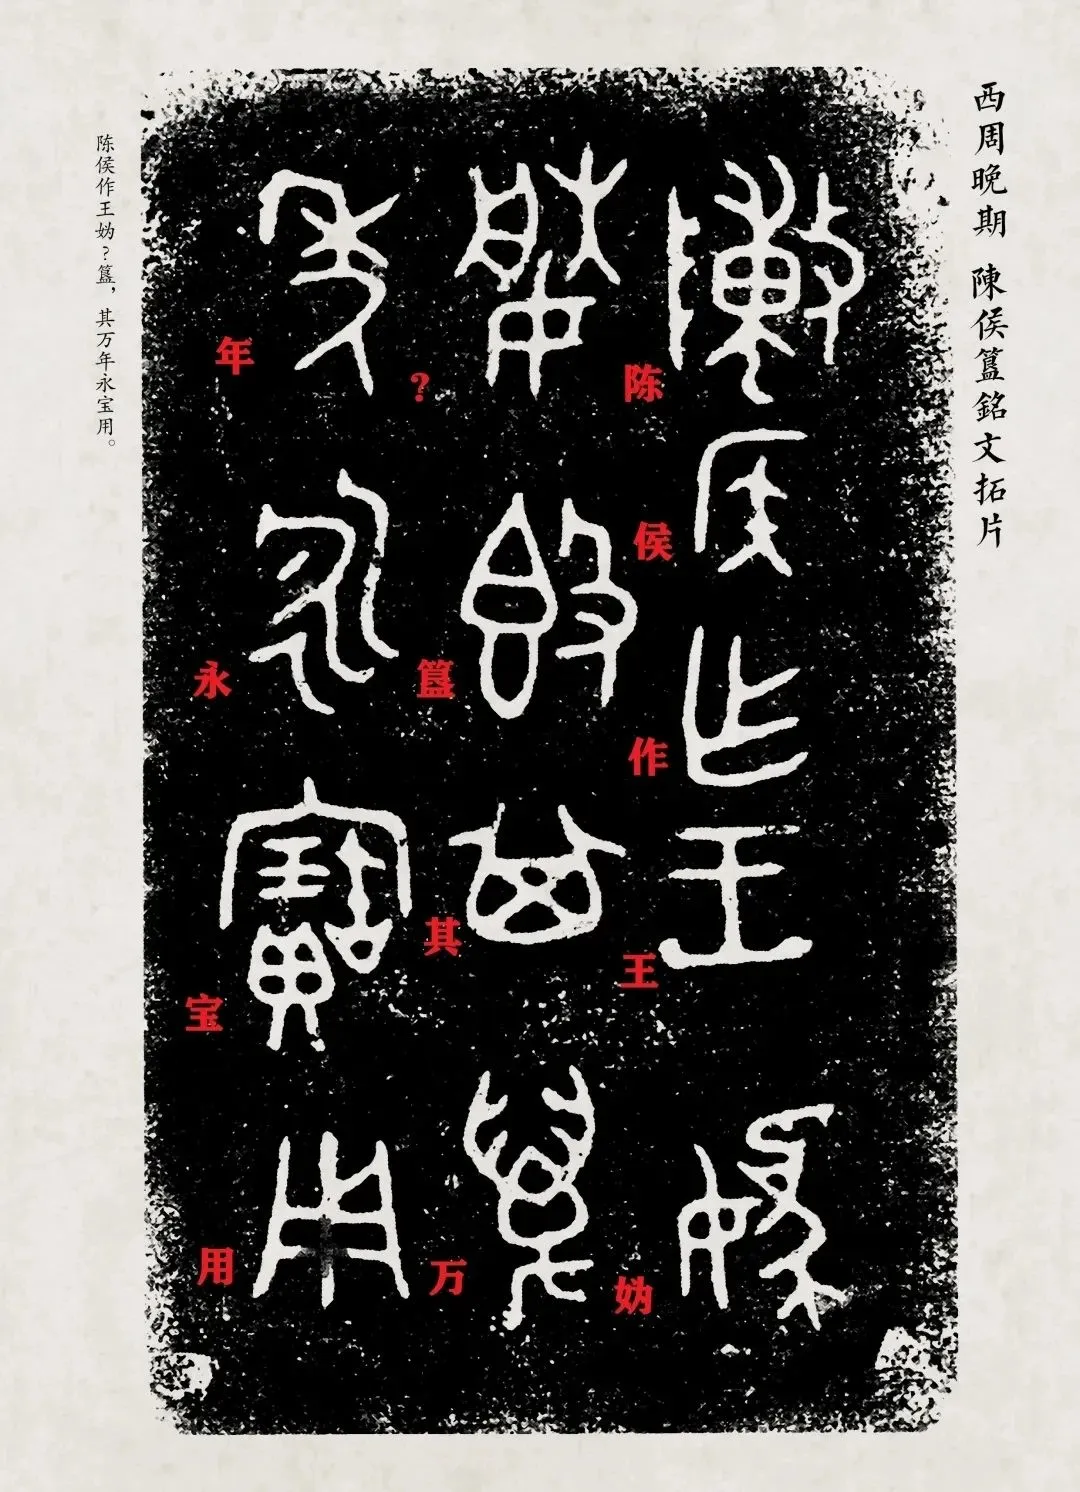 西周晚期 陳侯簋銘文拓片
陈侯作王妫
?簋其万
年永宝用
陈侯作王妫?簋，其万年永宝用。